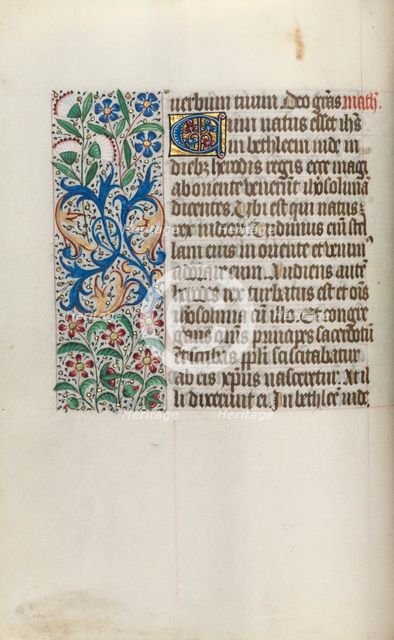 uerbum tuum. Deo gr̃as. math̃.
Cum natus esset ih̃s
in bethleem iude in
dieb; herodis regis ecce magi
ab oriente venerũt ih̃osolimã
dicentes. Vbi est qui natus ẽ
rex iudeoꝝ. Uidimus eni͂ stel
lam eius in oriente et venim᷒
adorare eum. Audiens autẽ
herodes rex turbatus est et oĩs
ih̃osolima cũ illo. Et congre
gans oẽs principes sacerdotũ
et scribas ppli sciscitabatur
ab eis xp̃us nasceretur. At il
li dixerunt ei. In bethlee iude.
Heritage
Heritage
Heritage
Heritage